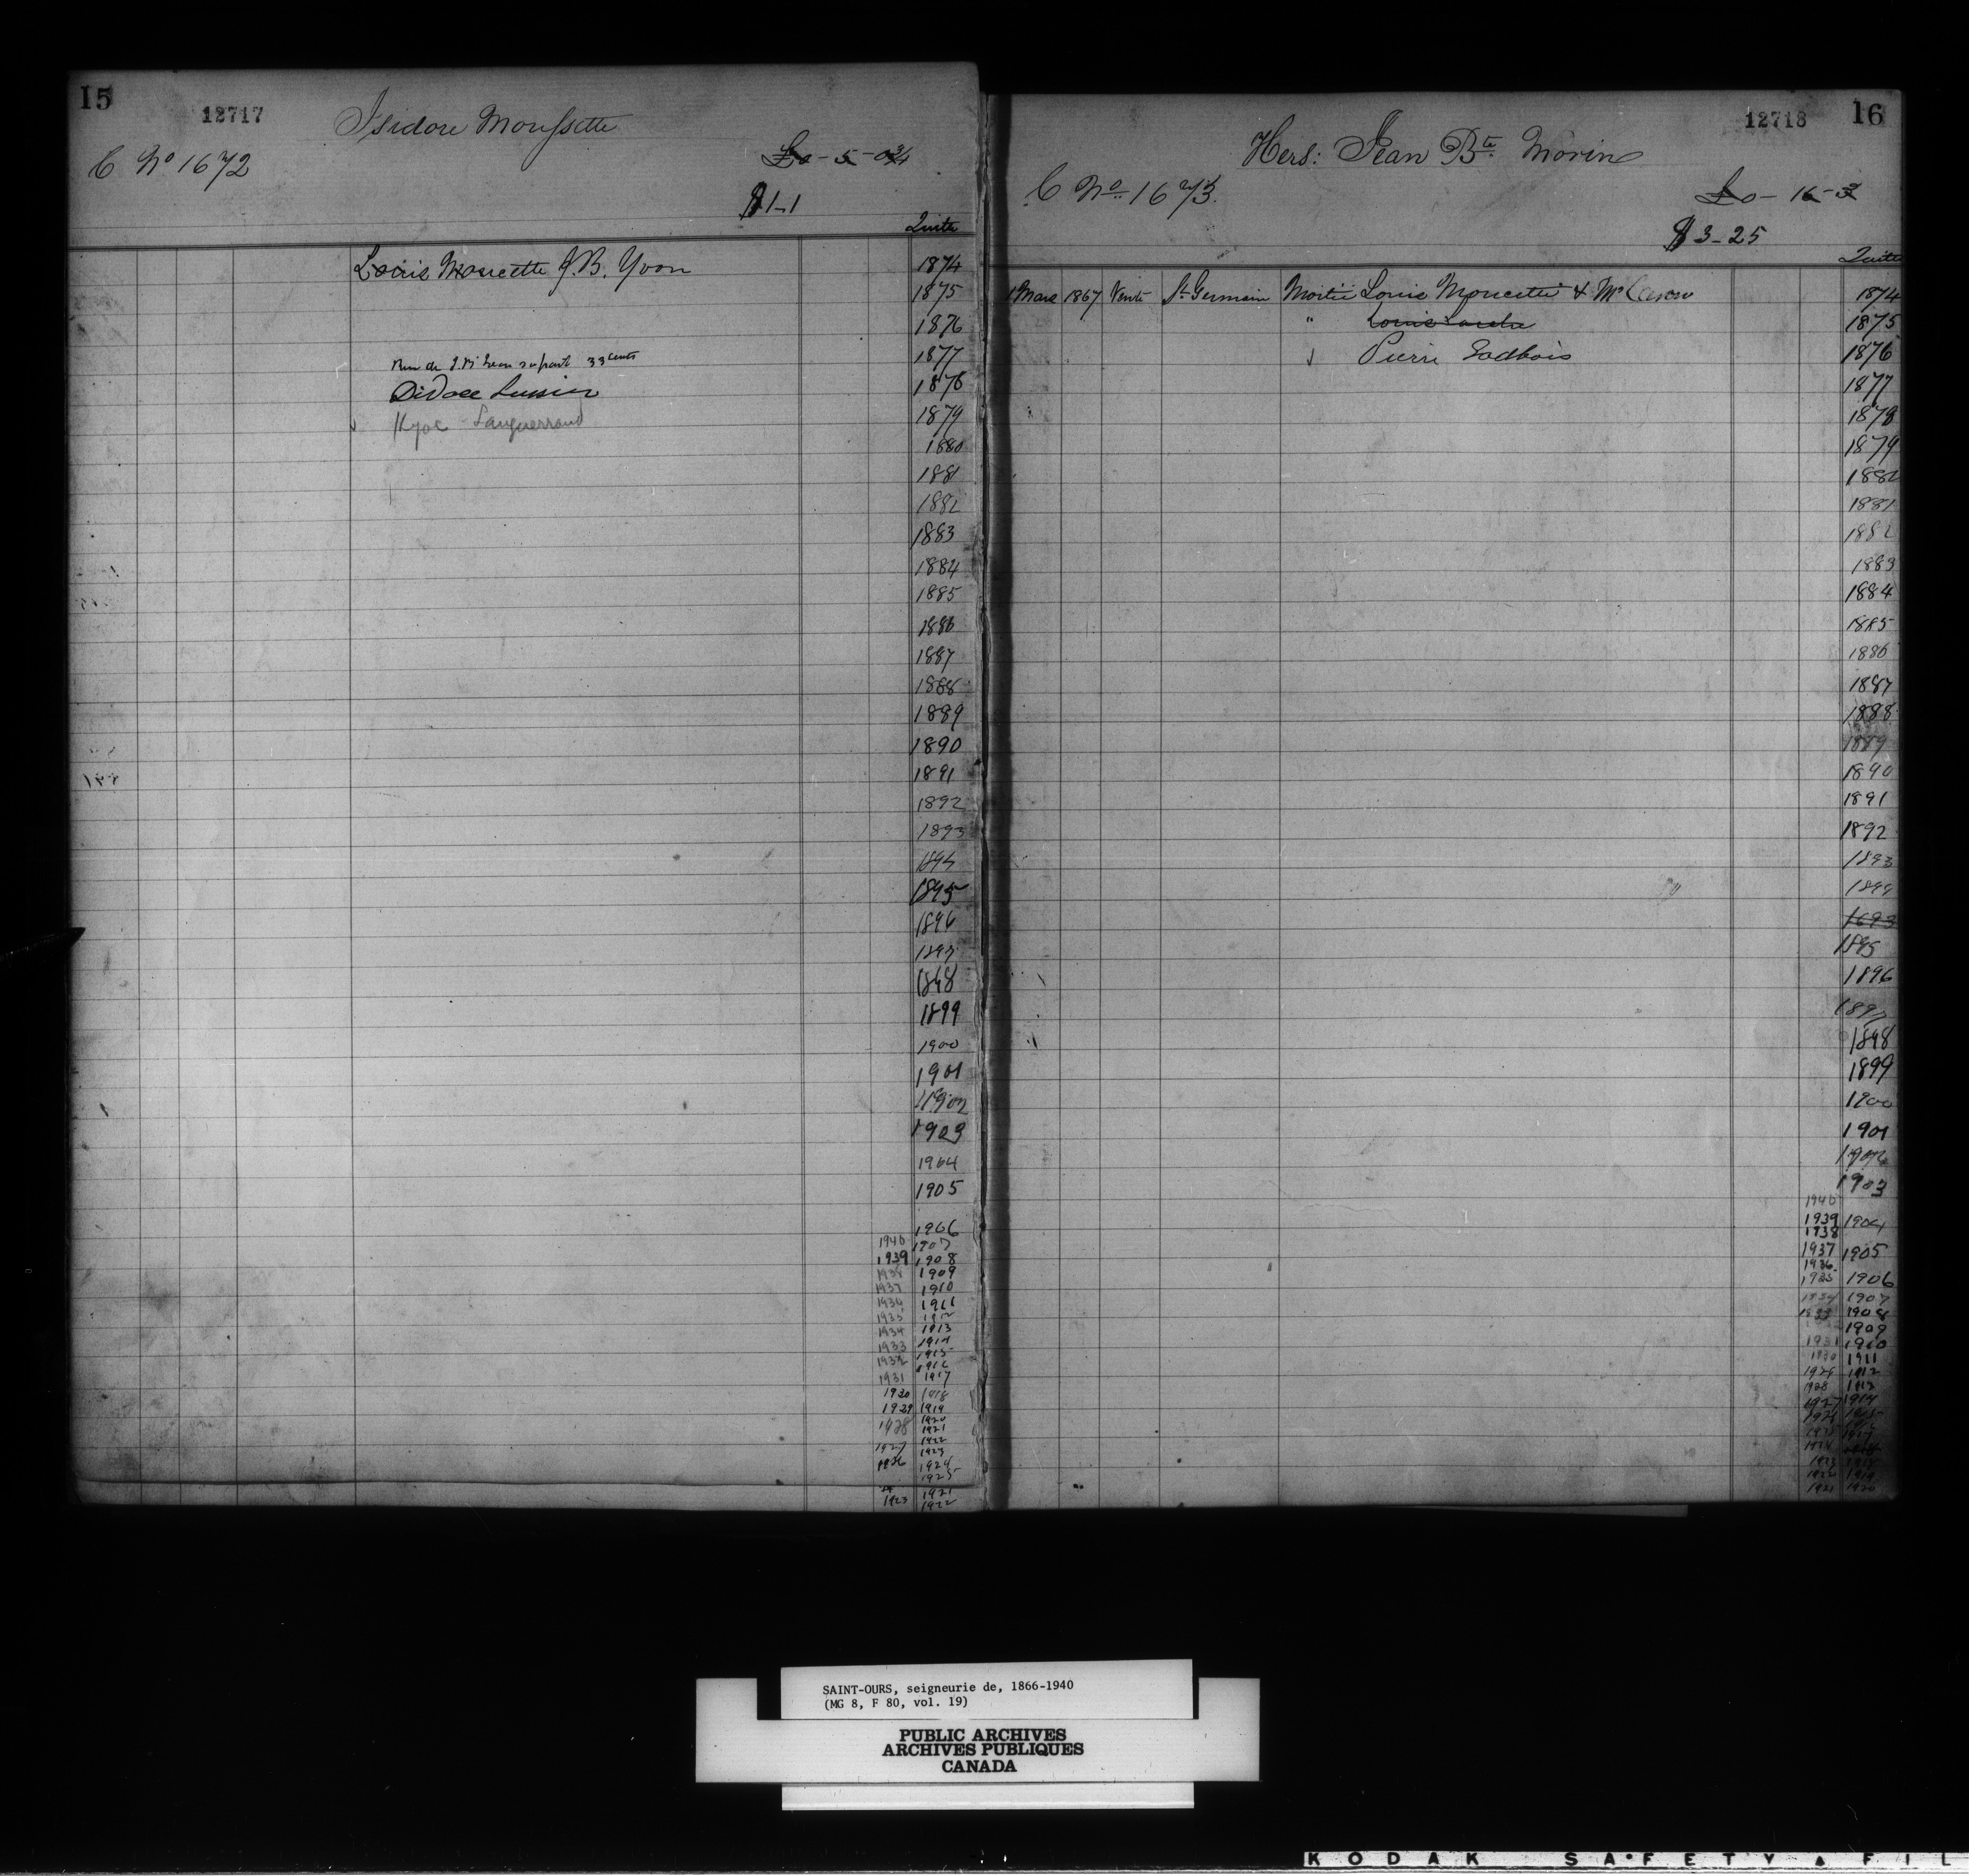 15
12717
Isidore Moussette
C No 1672
£0-5-0¾
$1-1
Quitte
Louis Moucette J.B. Yvon
1874
1875
1876
33 cents
1877
Didace Lussier
1878
Languerrand
1879
1880
1881
1882
1883
1884
1885
1886
1887
1888
1889
1890
1891
1892
1893
1894
1895
1896
1897
1898
1899
1900
1901
1902
1903
1904
1905
1906
1940 1907
1939 1908
1938 1909
1937 1910
1936 1911
1935 1912
1934 1913
1933 1914
1932 1915
1916
1931 1917
1930 1918
1929 1919
1928 1920
1921
1922
1927 1923
1926 1924
1925
1921
1923 1922
12718
16
Hers: Jean Bte Morin
C No 1673
£0-16-3
$3-25
Quitte
1 Mars 1867 Vente St Germain Moitié Louis Moucette & Me Caron
1874
" Louis
1875
Pierre Gadbois
1876
1877
1878
1879
1880
1881
1882
1883
1884
1885
1886
1887
1888
1889
1890
1891
1892
1893
1894
1893
1895
1896
1897
1898
1899
1900
1901
1902
1903
1940
1939 1904
1938
1937 1905
1936
1935 1906
1934 1907
1933 1908
1909
1931 1910
1930 1911
1929 1912
1928 1913
1927 1914
1926 1915
1925 1917
1924 1918
1923 1918
1922 1919
1921 1920
SAINT-OURS, seigneurie de, 1866-1940
(MG 8, F 80, vol. 19)
PUBLIC ARCHIVES
ARCHIVES PUBLIQUES
CANADA
KODAK SAFETY FIL